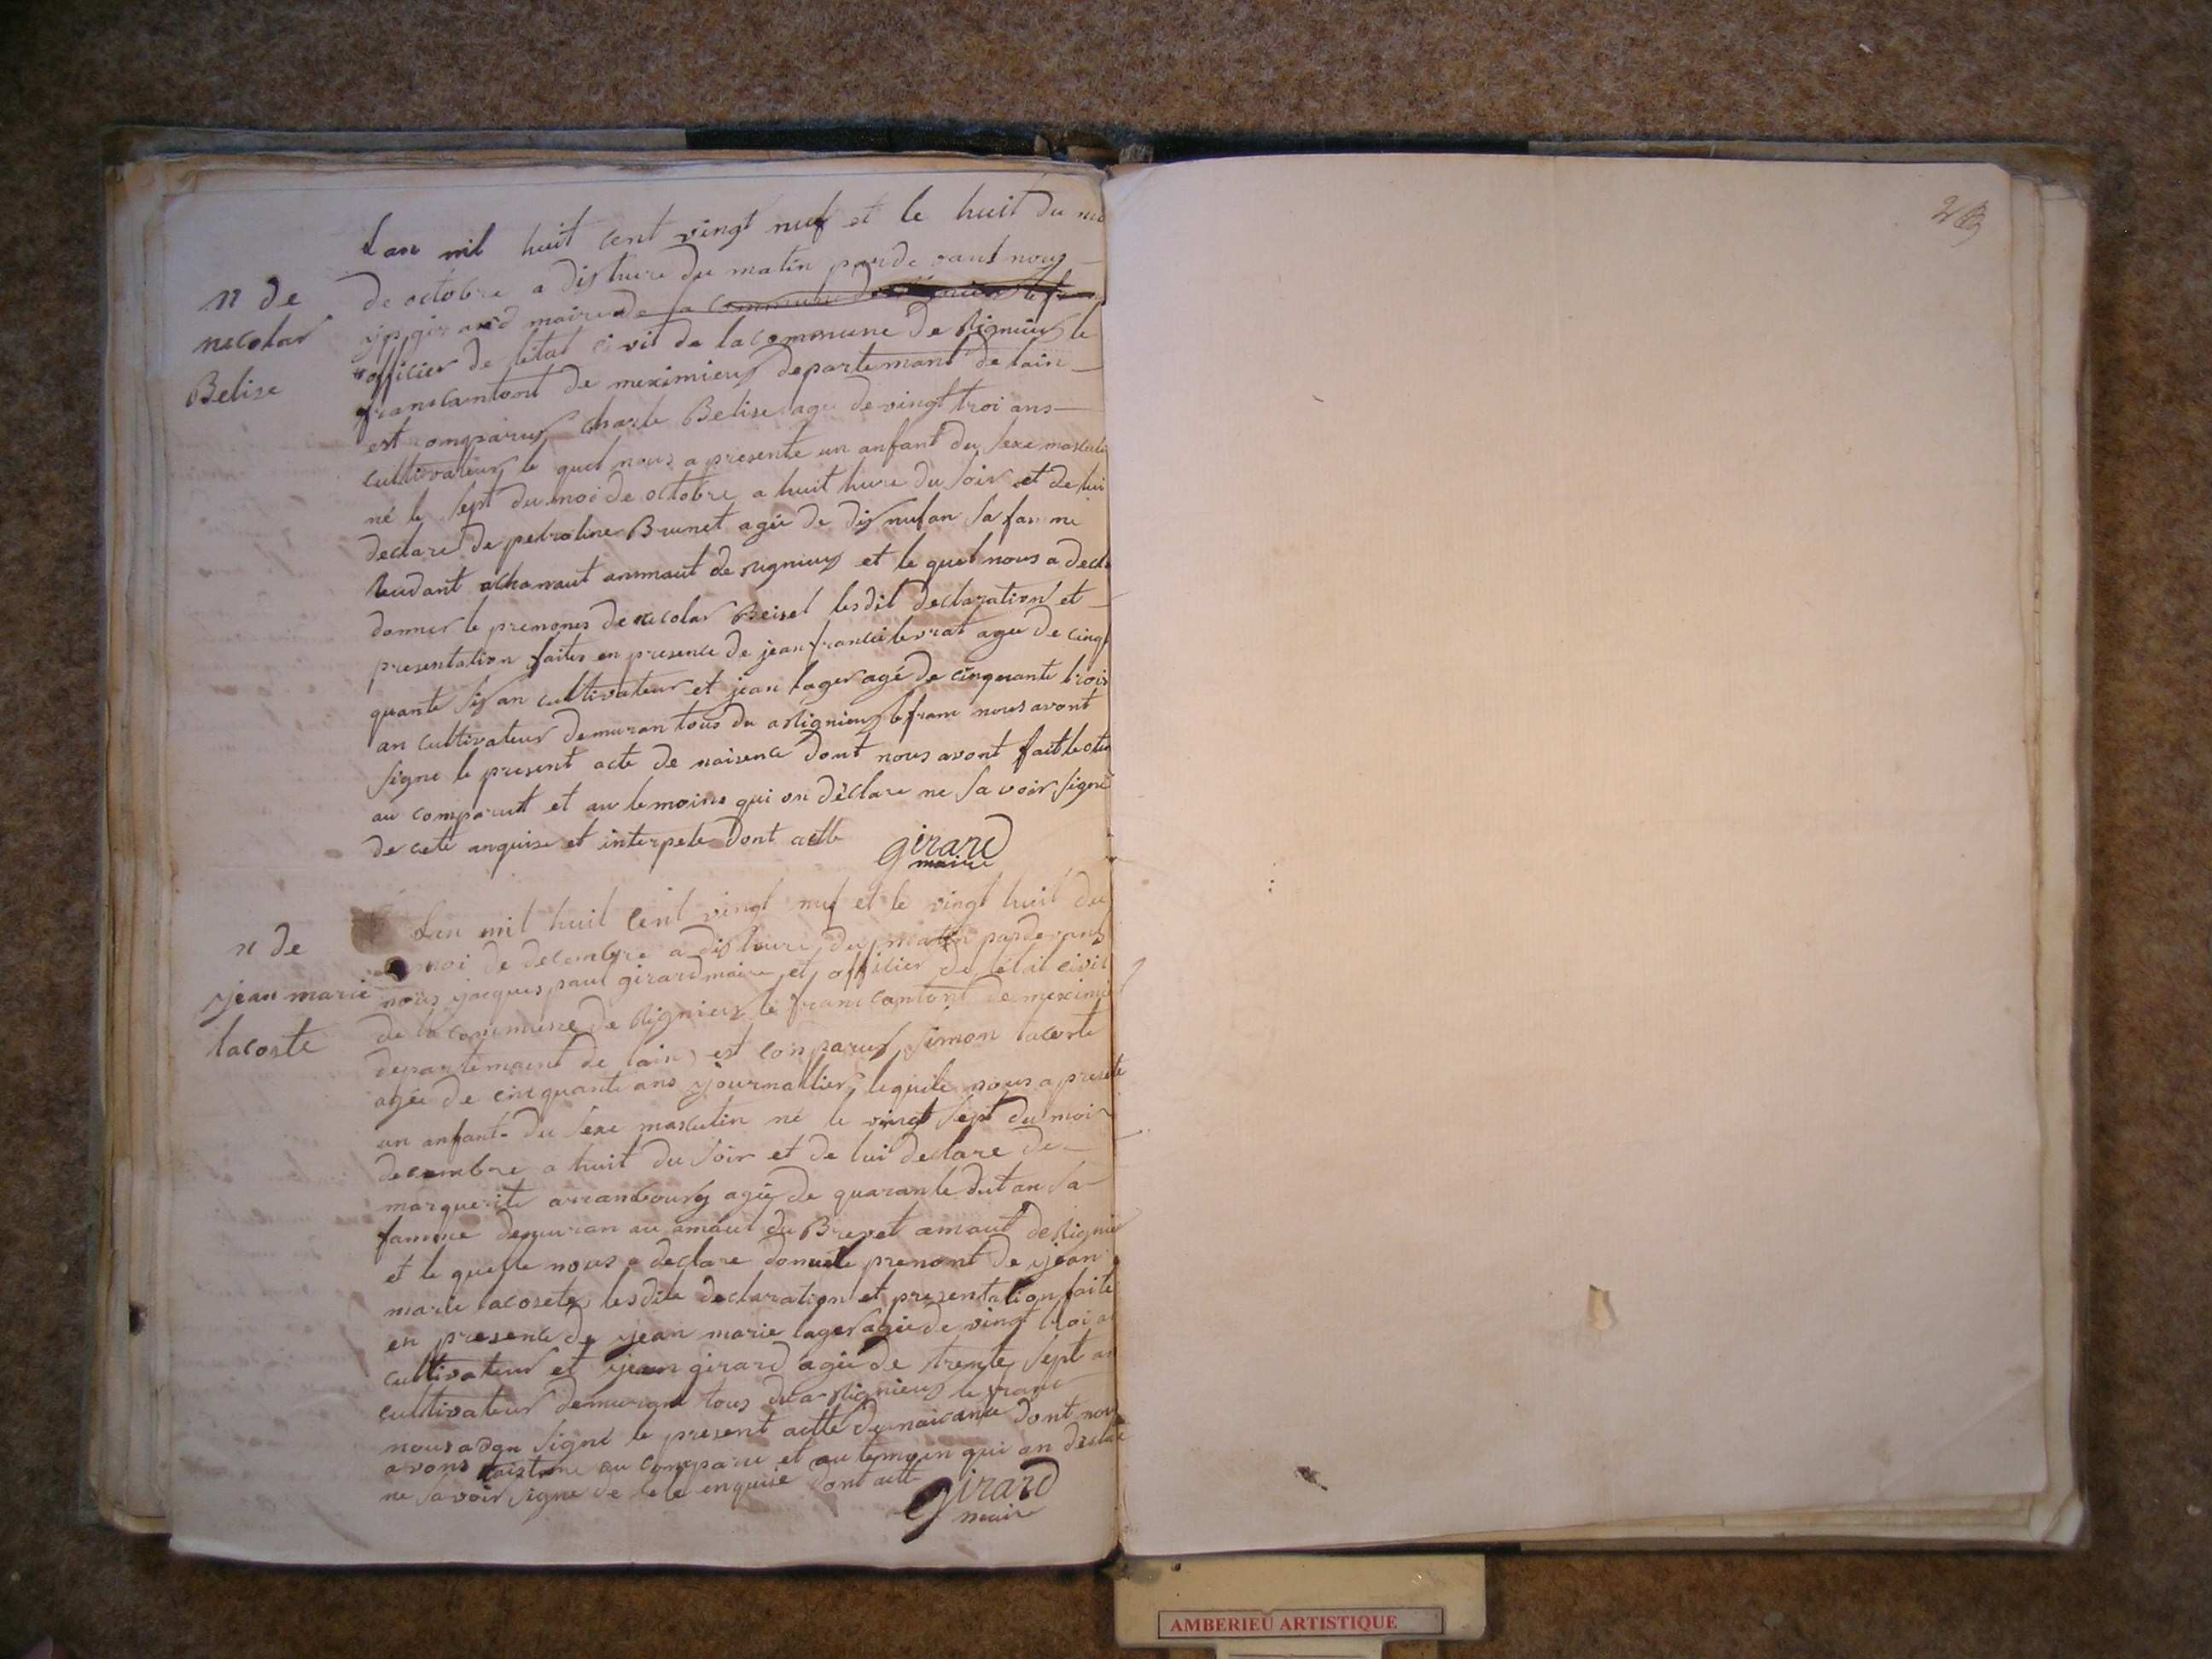 Lan mil huit cent vingt nuf et le huit du
n de
necolas
Belise
de octobre a dis hure du matin parde vant nous
jp girard maire de la commune de
officier de létat civil de la commune de Rignieux le
franc cantont de meximieux departemant de lain
est comparus charle Belise age de vingt troi ans
cultivateur le quel nous a presente un anfant du sexe masculi
né le sept du moi de octobre a huit hure du soir et de lui
declare de petroline Brunet agée de dis nuf an sa famme
amaut de rignieux et le quel nous a decla
donner le premones de necolas Beisel lesdit declaration et
presentation faites en presence de jean francei levrat agee de cinq
quante sis an cultivateur et jean lager agé de cinquante trois
an cultivateur demuran tous du a Rignieux le franc nous avont
signe le present acte de naisence dont nous avont fait lectu
au comparut et au temoins qui on déclare ne savoir signé
de cete anquise et interpele dont actte
girard
maire
n de
jean marie
lacoste
Lan mil huit cent vingt nuf et le vingt huit du
moi de decembre a dis hure du matin pardevant
nous jacques paul girard maire et officier de létat civil
de la commune de Rignieux le franc cantont de meximie
departemant de lain est comparus simon lacoste
agée de cinquante ans journallier lequele nous a presente
un anfant du sexe masculin né le vingt sept du moi
decembre a huit du soir et de lui declare de
marguerite arranbourg agée de quarante dut an sa
famme demuran au amaut du Brevet amaut de Rignieu
et le quelle nous a declare donnele prenont de jean
marie lacosete lesdite declaration et presentation faite
en presence de jean marie lager agée de vingt troi an
cultivateur et jean girard agée de trente sept an
cultivateur demuran tous du a Rignieux le franc
nous avon signé le present actte de naicance dont nou
avons au comparu et au temoin qui on declare
ne savoir signe de cete enquise dont actt
girard
maire
AMBERIEU ARTISTIQUE